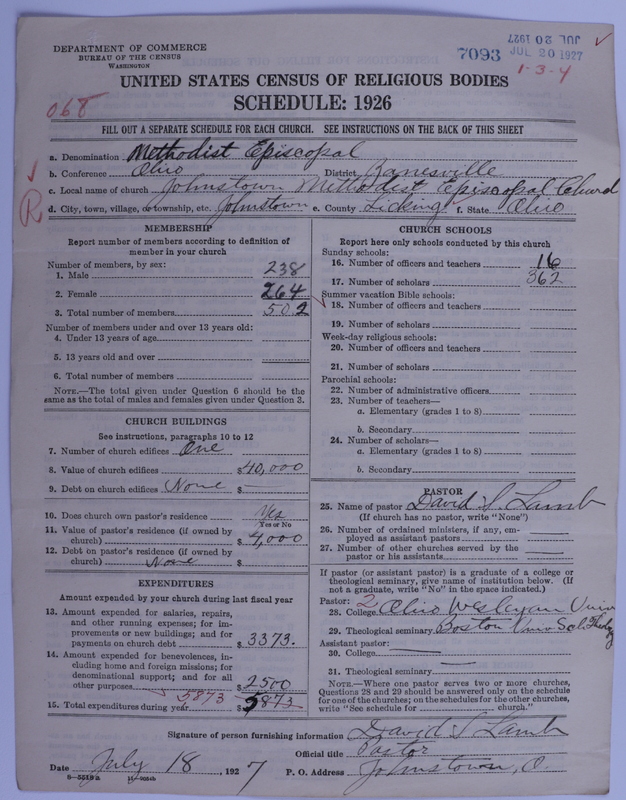 DEPARTMENT OF COMMERCE
BUREAU OF THE CENSUS
WASHINGTON
7093
JUL 20 1927
JUL 20 1927
1-3-4
UNITED STATES CENSUS OF RELIGIOUS BODIES
SCHEDULE: 1926
068
FILL OUT A SEPARATE SCHEDULE FOR EACH CHURCH. SEE INSTRUCTIONS ON THE BACK OF THIS SHEET
a. Denomination Methodist Episcopal
b. Conference Ohio District Zanesville
c. Local name of church Johnstown Methodist Episcopal Church
R
d. City, town, village, or township, etc. Johnstown e. County Licking f. State Ohio
MEMBERSHIP
Report number of members according to definition of
member in your church
Number of members, by sex:
1. Male 238
2. Female 264
3. Total number of members 502
Number of members under and over 13 years old:
4. Under 13 years of age
5. 13 years old and over
6. Total number of members
NOTE.—The total given under Question 6 should be the
same as the total of males and females given under Question 3.
CHURCH BUILDINGS
See instructions, paragraphs 10 to 12
7. Number of church edifices One
8. Value of church edifices $40,000
9. Debt on church edifices None $
10. Does church own pastor's residence Yes
Yes or No
11. Value of pastor's residence (if owned by
church) $4,000
12. Debt on pastor's residence (if owned by
church) None $
EXPENDITURES
Amount expended by your church during last fiscal year
13. Amount expended for salaries, repairs,
and other running expenses; for im-
provements or new buildings; and for
payments on church debt $3373.
14. Amount expended for benevolences, in-
cluding home and foreign missions; for
denominational support; and for all
other purposes $2500
5873
15. Total expenditures during year $5873
CHURCH SCHOOLS
Report here only schools conducted by this church
Sunday schools:
16. Number of officers and teachers 16
17. Number of scholars 362
Summer vacation Bible schools:
18. Number of officers and teachers
19. Number of scholars
Week-day religious schools:
20. Number of officers and teachers
21. Number of scholars
Parochial schools:
22. Number of administrative officers
23. Number of teachers—
a. Elementary (grades 1 to 8)
b. Secondary
24. Number of scholars—
a. Elementary (grades 1 to 8)
b. Secondary
PASTOR
25. Name of pastor David S. Lamb
(If church has no pastor, write "None")
26. Number of ordained ministers, if any, em-
ployed as assistant pastors
27. Number of other churches served by the
pastor or his assistants
If pastor (or assistant pastor) is a graduate of a college or
theological seminary, give name of institution below. (If
not a graduate, write "No" in the space indicated.)
Pastor: 2
28. College Ohio Wesleyan Univ
29. Theological seminary Boston Univ Sch Theology
Assistant pastor:
30. College
31. Theological seminary
NOTE.—Where one pastor serves two or more churches,
Questions 28 and 29 should be answered only on the schedule
for one of the churches; on the schedules for the other churches,
write "See schedule for church."
Signature of person furnishing information David S Lamb
Official title Pastor
Date July 18, 1927 P. O. Address Johnstown, O.